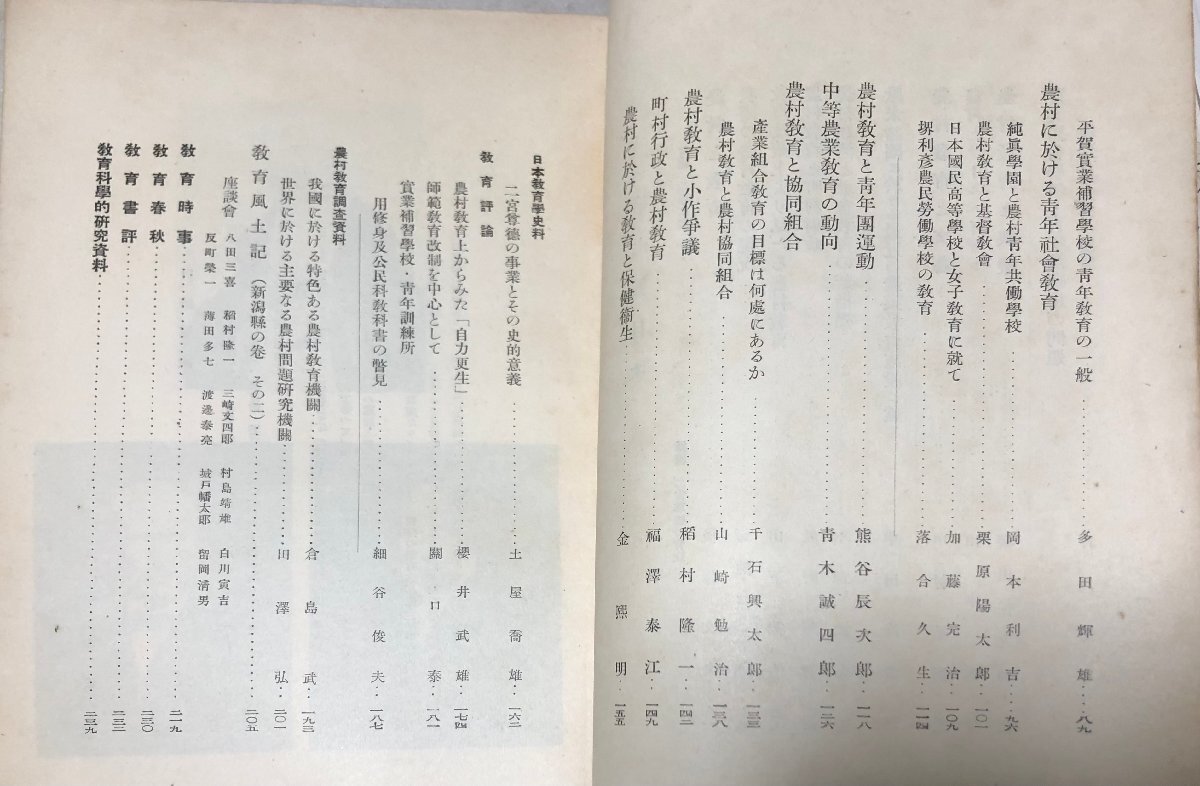 平賀實業補習學校の靑年敎育の一般……多田輝雄…八九
農村に於ける靑年社會敎育
純眞學園と農村靑年共働學校……岡本利吉…九六
農村敎育と基督敎會……栗原陽太郞…一〇一
日本國民高等學校と女子敎育に就て……加藤完治…一〇九
堺利彥農民勞働學校の敎育……落合久生…一一四
農村敎育と靑年團運動……熊谷辰次郞…一一八
中等農業敎育の動向……靑木誠四郞…一二六
農村敎育と協同組合
產業組合敎育の目標は何處にあるか……千石興太郞…一三三
農村敎育と農村協同組合……山崎勉治…一三八
農村敎育と小作爭議……稻村隆一…一四二
町村行政と農村敎育……福澤泰江…一四九
農村に於ける敎育と保健衞生……金熙明…一五五
日本敎育學史料
二宮尊德の事業とその史的意義……土屋喬雄…一六二
敎育評論
農村敎育上からみた「自力更生」……櫻井武雄…一七四
師範敎育改制を中心として……關口泰…一八一
實業補習學校・靑年訓練所
用修身及公民科敎科書の瞥見……細谷俊夫…一八七
農村敎育調查資料
我國に於ける特色ある農村敎育機關……倉島武…一九三
世界に於ける主要なる農村問題硏究機關……田澤弘…二〇一
敎育風土記(新潟縣の卷 その二)……二〇五
座談會 八田三喜 稻村隆一 三崎文四郞 村島靖雄 白川寅吉
反町榮一 薄田多七 渡邊泰亮 城戶幡太郞 留岡淸男
敎育時事……二一九
敎育春秋……二三〇
敎育書評……二三二
敎育科學的硏究資料……二三九